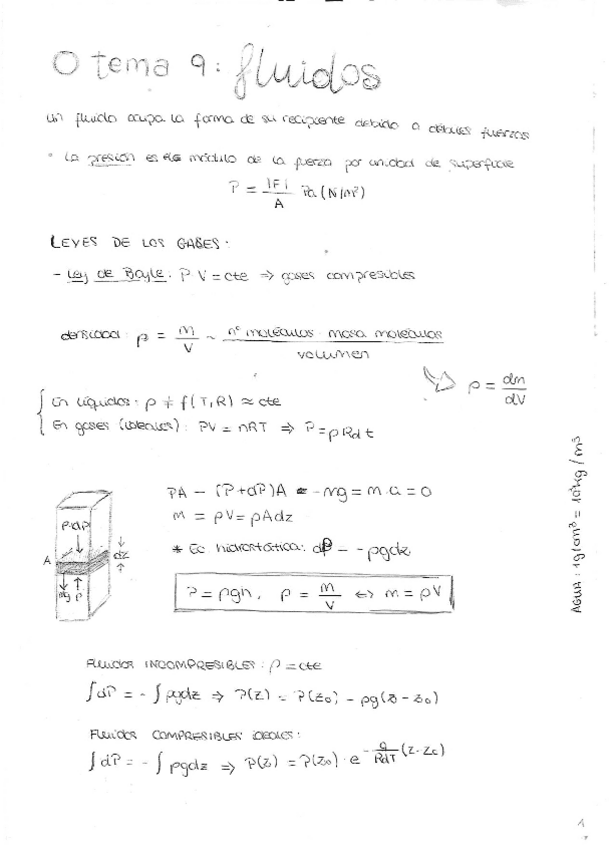 O tema 9: fluidos
un fluido ocupa la forma de su recipiente debido a débiles fuerzas
* La presión es el módulo de la fuerza por unidad de superficie
P = |F| / A Pa (N/m²)
LEYES DE LOS GASES:
- Ley de Boyle: P V = cte ⇒ gases compresibles
densidad: ρ = m/V ~ nº moléculas · masa moléculas / volumen
ρ = dm/dV
En líquidos: ρ ≠ f(T,R) ≈ cte
En gases (ideales): PV = nRT ⇒ P = ρRdt
PA - (P+dP)A - mg = m·a = 0
m = ρV = ρAdz
* Ec hidrostática: dP = -ρgdz
P = ρgh, ρ = m/V ⇔ m = ρV
P+dP
A
dz
mg P
AGUA: 1g/cm³ = 10³kg/m³
FLUIDOS INCOMPRESIBLES: ρ = cte
∫dP = - ∫ρgdz ⇒ P(z) = P(z₀) - ρg(z - z₀)
FLUIDOS COMPRESIBLES IDEALES:
∫dP = - ∫ρgdz ⇒ P(z) = P(z₀) · e^(-g/RdT (z-z₀))
1